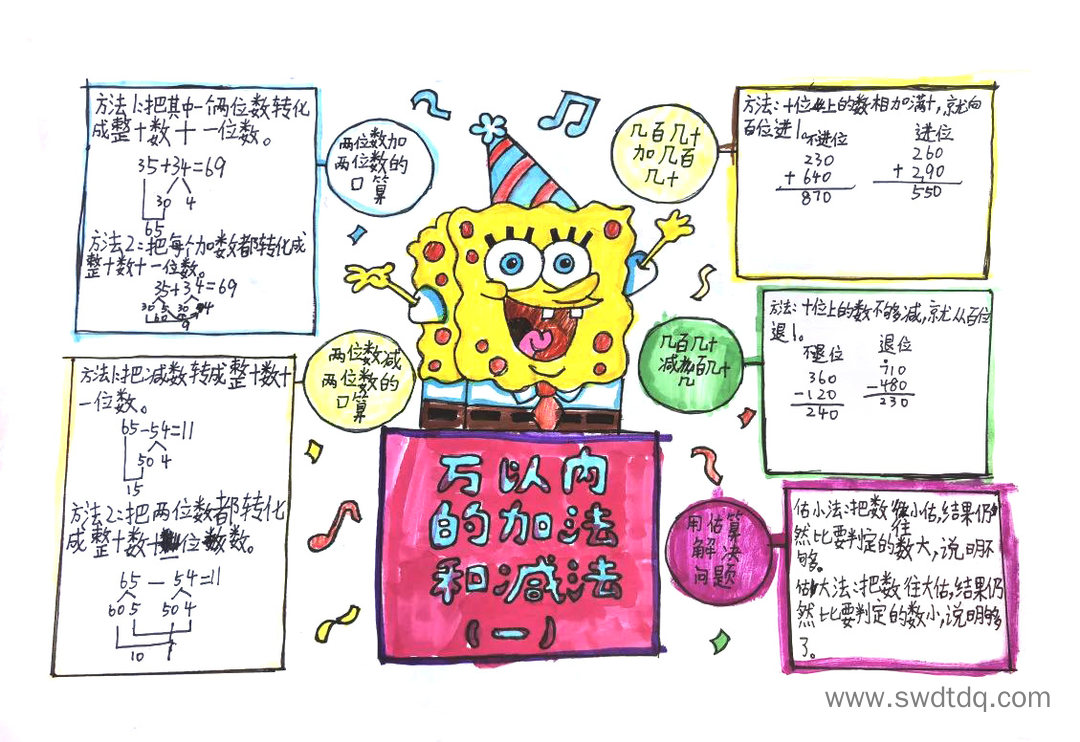 方法1:把其中一个两位数转化
成整十数十一位数。
35+34=69
30 4
65
方法2:把每个加数都转化成
整十数十一位数。
35+34=69
30 5 30 4
60 9
9
两位数加
两位数的
口算
方法1:把减数转成整十数十
一位数。
65-54=11
50 4
15
方法2:把两位数都转化
成整十数十位数数。
65-54=11
60 5 50 4
10 1
两位数减
两位数的
口算
万以内
的加法
和减法
(一)
几百几十
加几百
几十
方法:十位上的数相加满十,就向
百位进1。
不进位
230
+640
870
进位
260
+290
550
几百几十
减几百几十
方法:十位上的数不够减,就从百位
退1。
不退位
360
-120
240
退位
710
-480
230
用估算
解决
问题
估小法:把数往小估,结果仍
然比要判定的数大,说明不
够。
估大法:把数往大估,结果仍
然比要判定的数小,说明够
了。
www.swdtdq.com